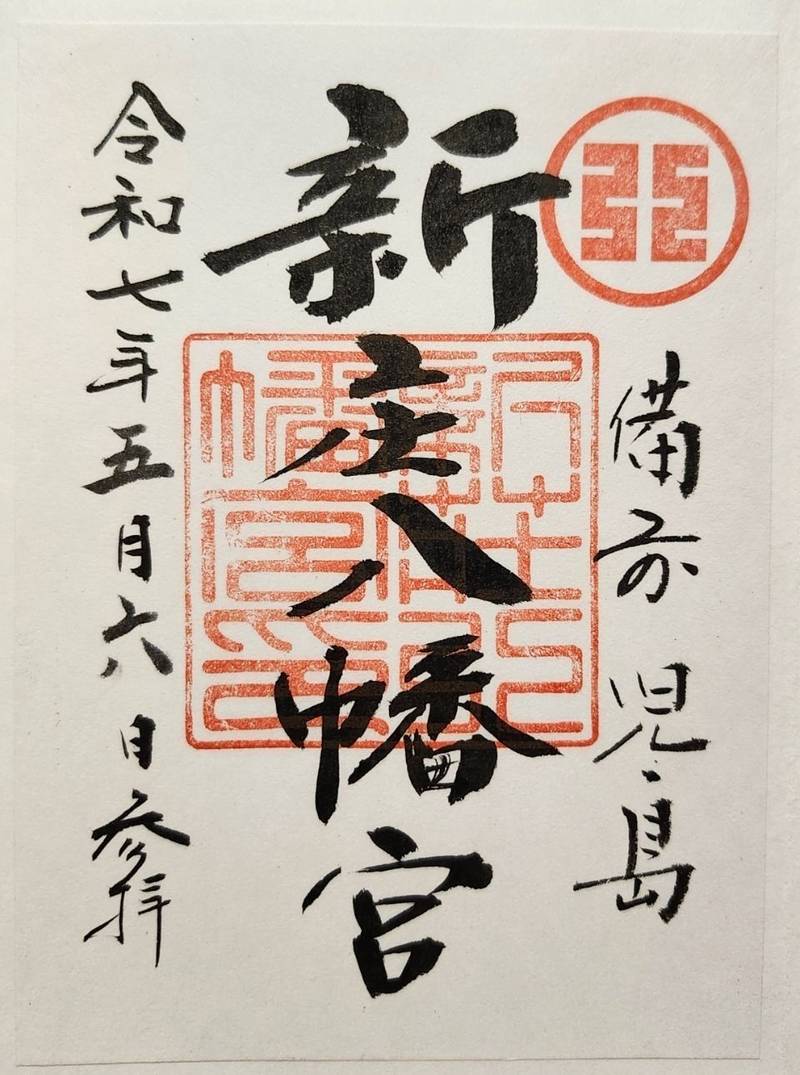 備前児島
新庄八幡宮
令和七年五月六日参拝